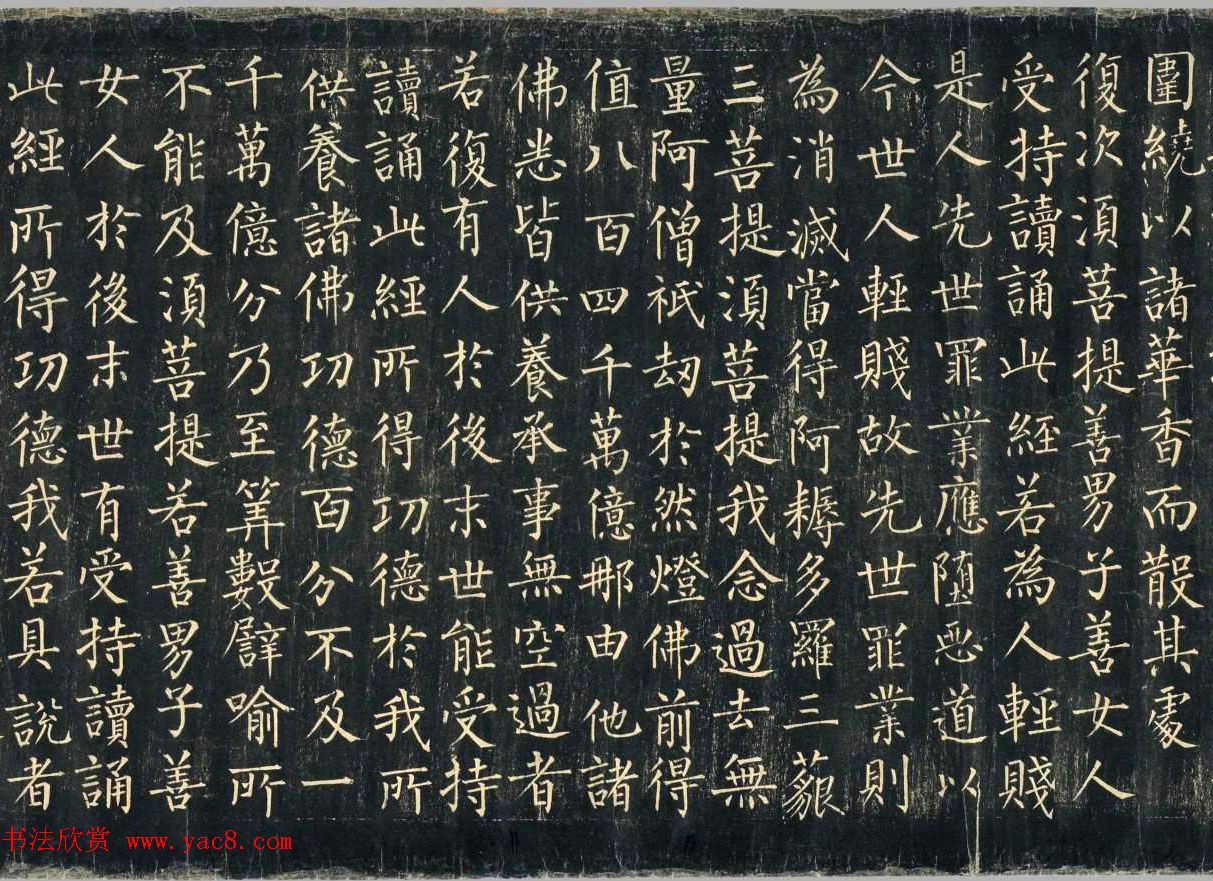 圍繞以諸華香而散其處
復次須菩提善男子善女人
受持讀誦此經若為人輕賤
是人先世罪業應堕惡道以
今世人輕賤故先世罪業則
為消滅當得阿耨多羅三藐
三菩提須菩提我念過去無
量阿僧祇劫於然燈佛前得
值八百四千萬億那由他諸
佛悉皆供養承事無空過者
若復有人於後末世能受持
讀誦此經所得功德於我所
供養諸佛功德百分不及一
千萬億分乃至筭數譬喻所
不能及須菩提若善男子善
女人於後末世有受持讀誦
此經所得功德我若具說者
书法欣赏 www.yac8.com